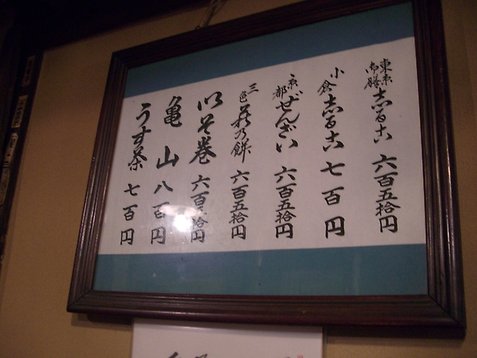 東京御膳志るこ 六百五拾円
小倉志るこ 七百円
京都ぜんざい 六百五拾円
三色萩乃餅 六百五拾円
以そ巻 六百五拾円
亀山 八百円
うす茶 七百円